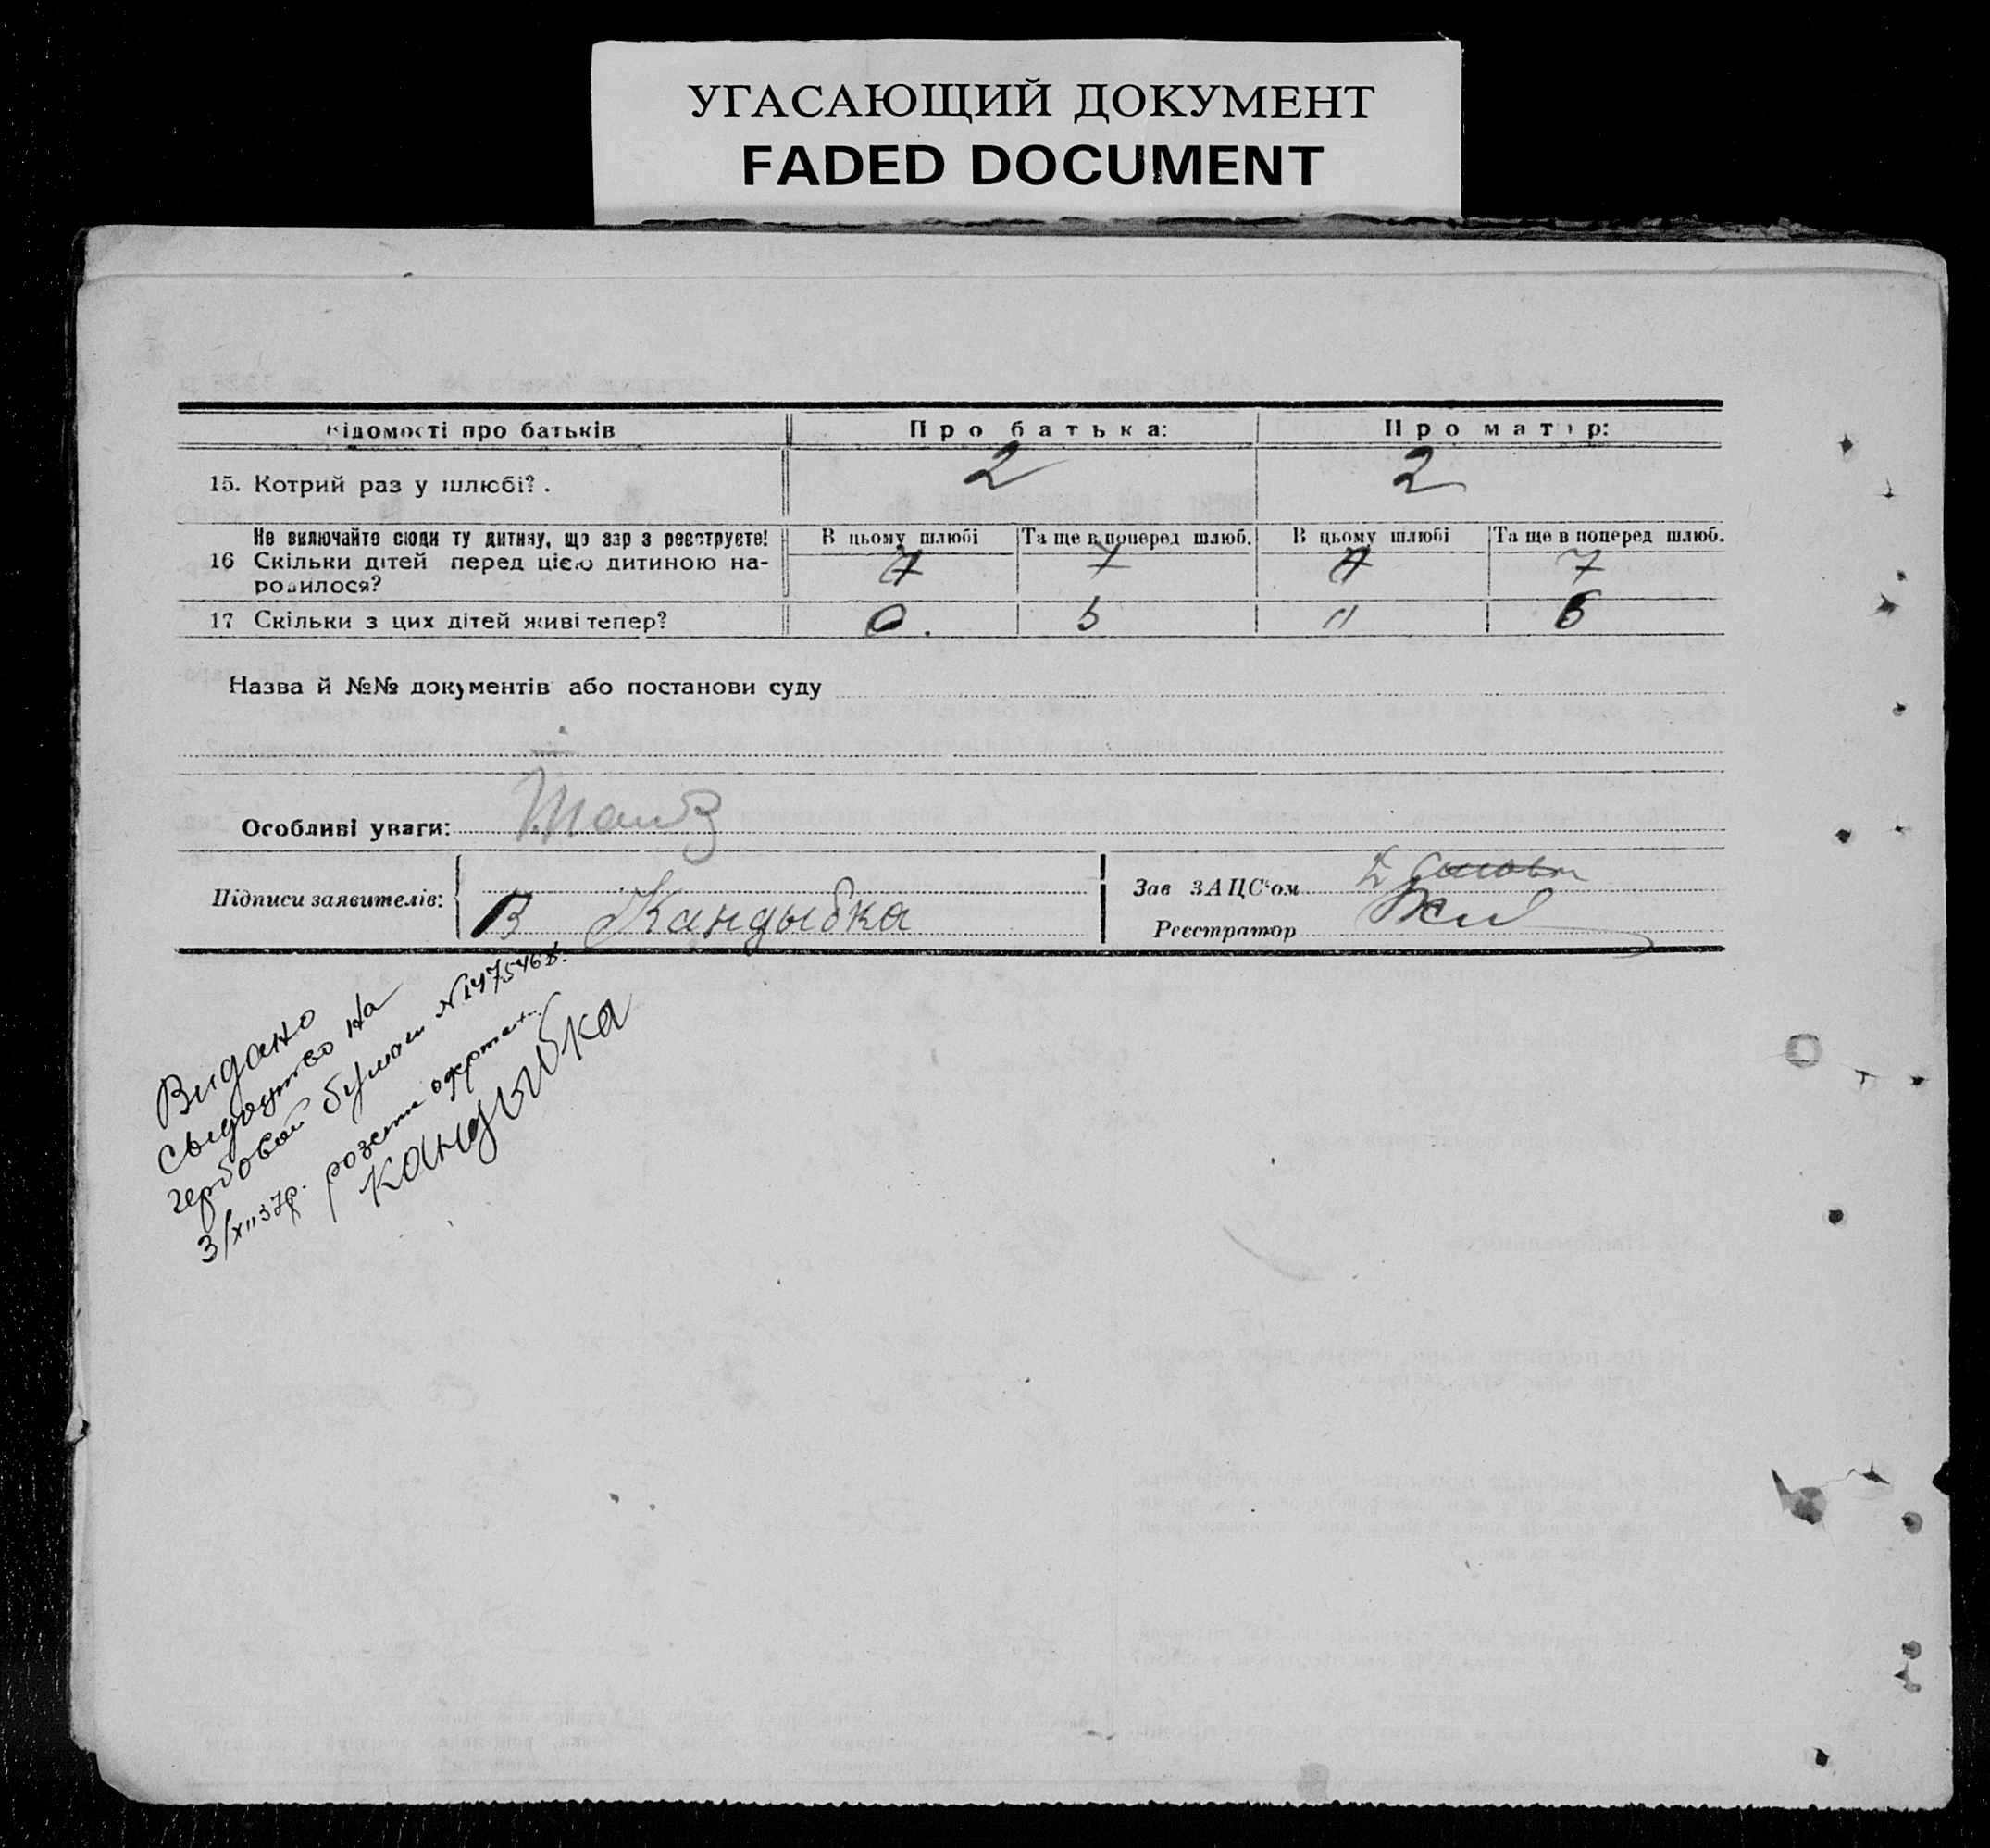 УГАСАЮЩИЙ ДОКУМЕНТ
FADED DOCUMENT
відомості про батьків Про батька: Про матір:
15. Котрий раз у шлюбі? . 2 2
Не включайте сюди ту дитину, що зар з реєструєте! В цьому шлюбі Та ще в поперед шлюб. В цьому шлюбі Та ще в поперед шлюб.
16 Скільки дітей перед цією дитиною на-
родилося? 7 7
17 Скільки з цих дітей живі тепер? 0. 5 " 6
Назва й №№ документів або постанови суду
Особливі уваги:
Підписи заявителів: В Кандыбка
Зав ЗАЦС'ом
Реєстратор
Видано
свидоцтво на
гербовой бумаги N 147546
3/XII 37р.
Кандыбка